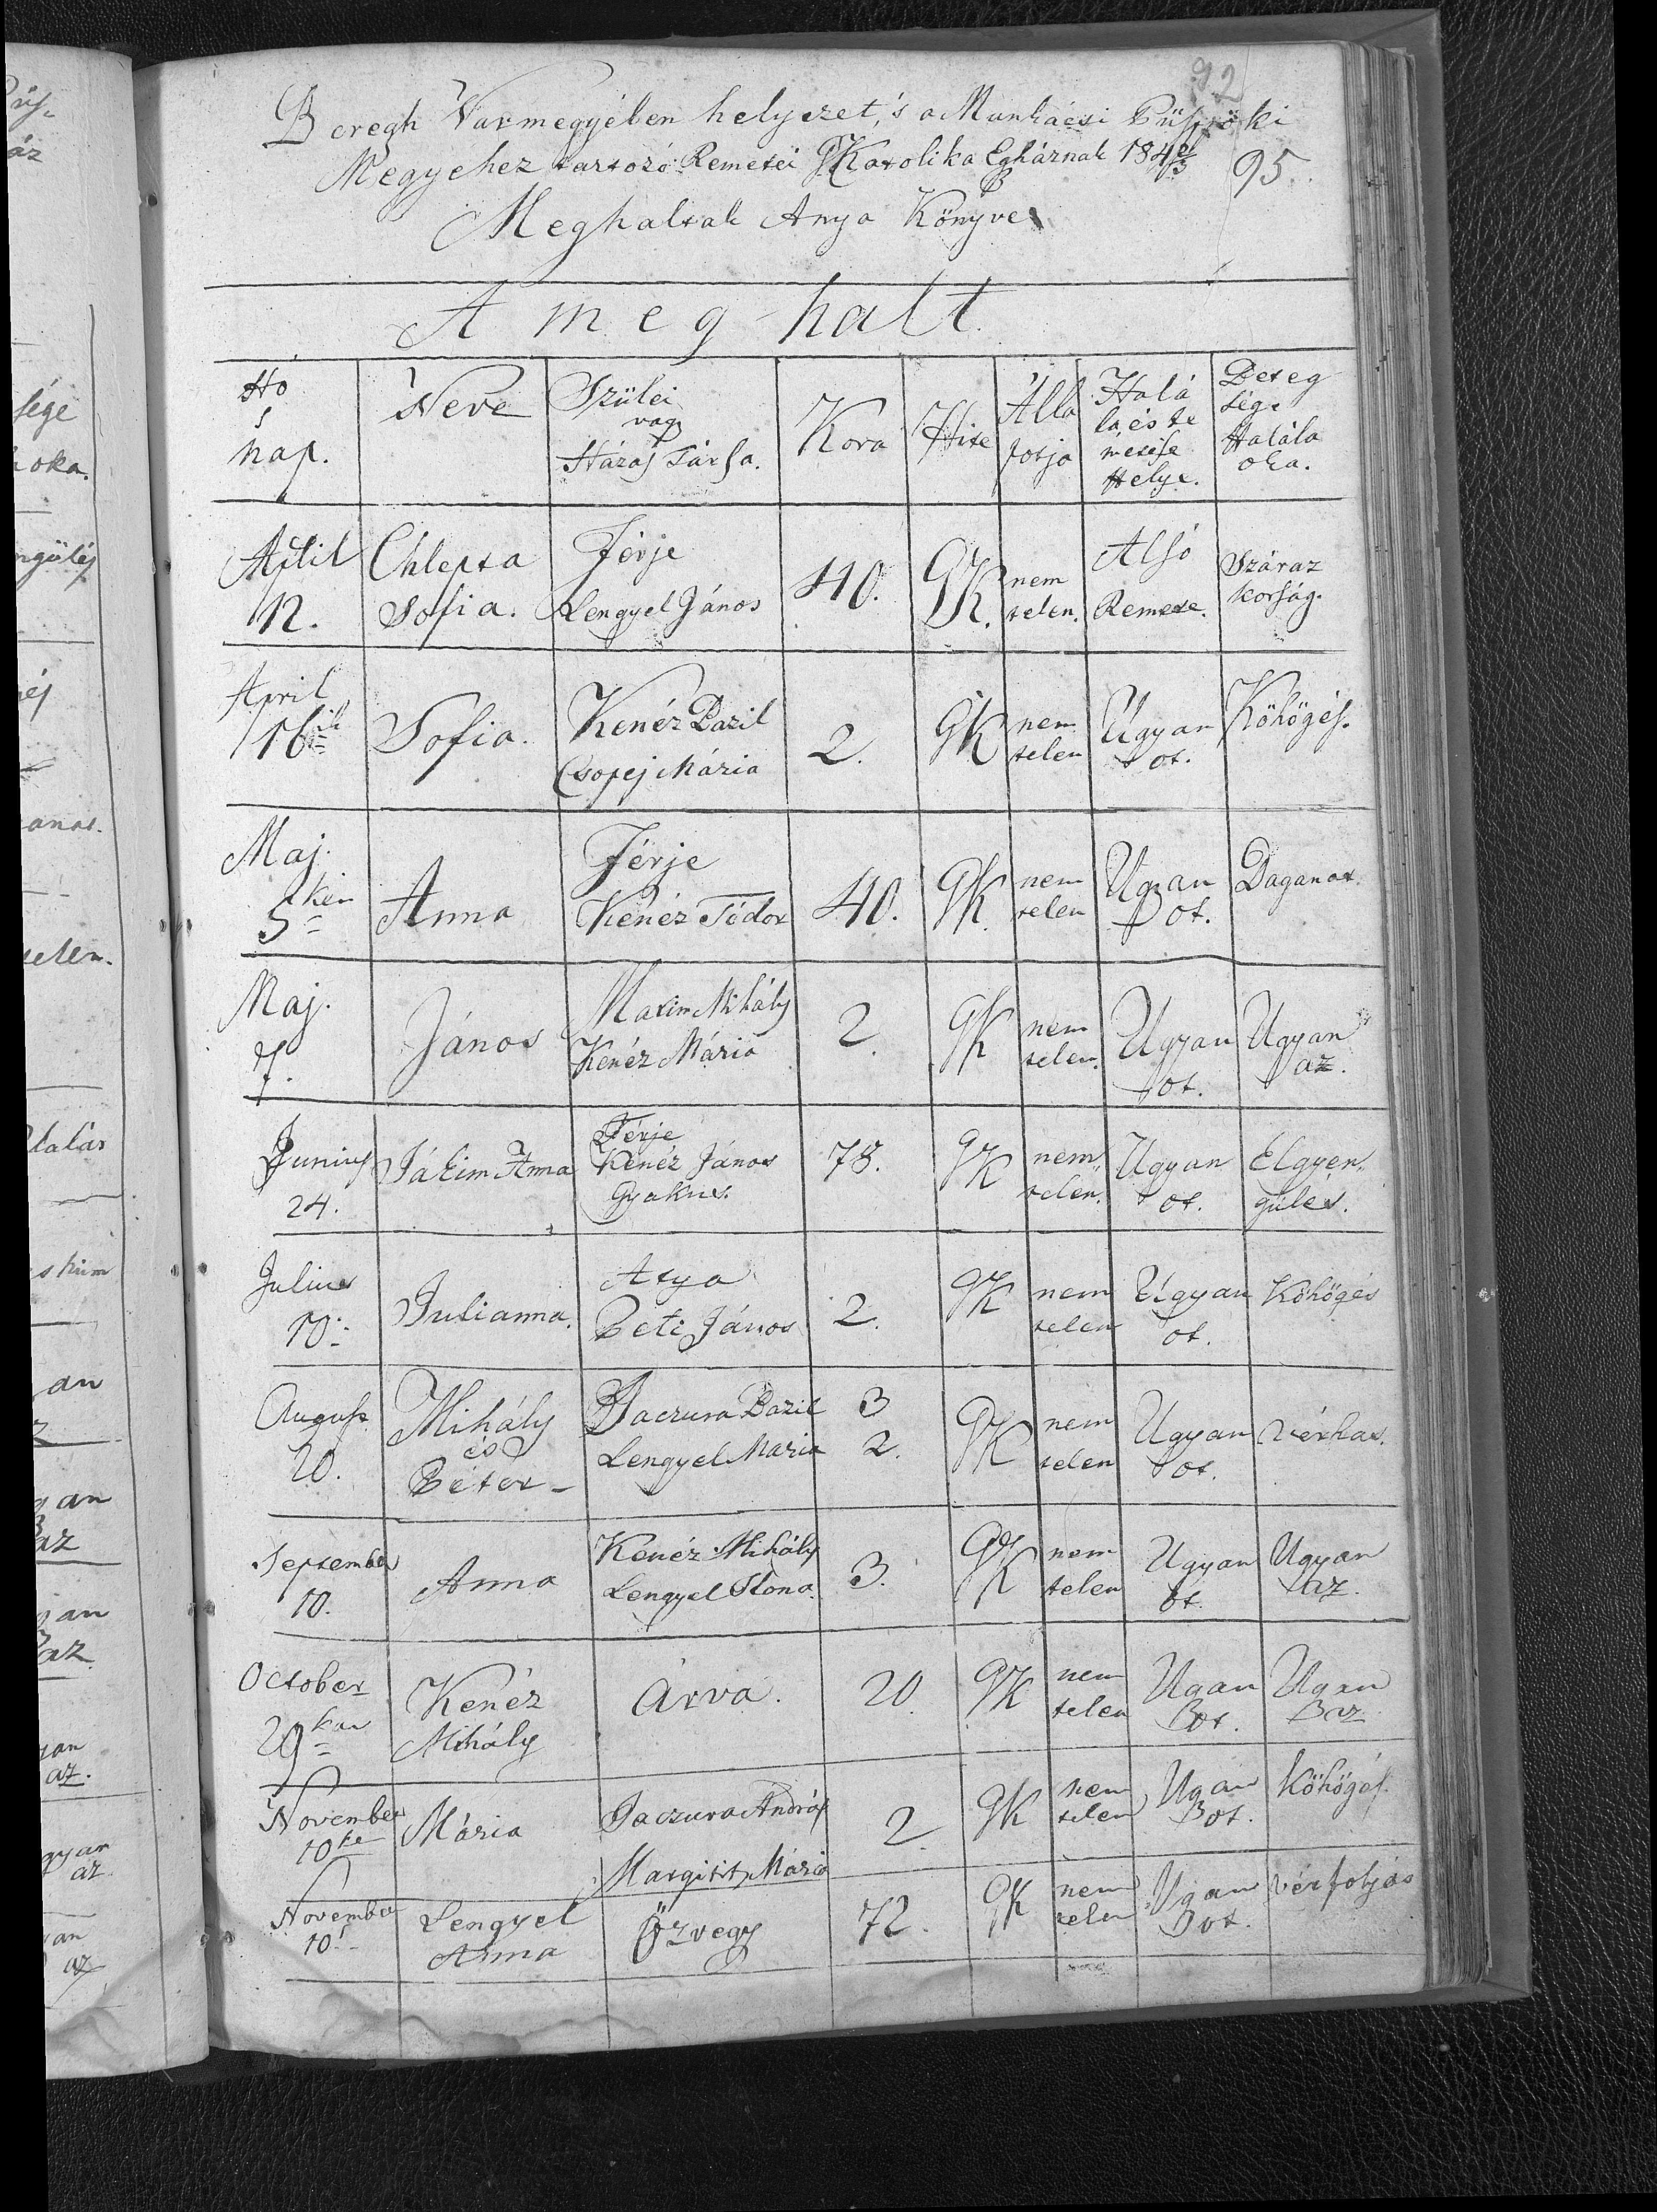 92
Beregh Varmegyében helyezet, 's a Munkácsi Püspöki
Megyehez tartozó Remetei GKatolika Egháznak 1842/3 95.
Meghaltak Anya Könyve
A meg-halt
Hó s nap. Neve Szülei vagy Házas Társa. Kora Hite Álla potja Halá la és te metése Helye. Beteg sége Halála oka.
April 12. Chlepta Sofia. Férje Lengyel János 40. GK. nem telen. Alsó Remete. Száraz korság.
April 16ik Sofia. Kenéz Bazil Csopej Mária 2. GK nem telen Ugyan ot. Köhögés.
Maj. 5kén Anna Férje Kenéz Tódor 40. GK. nem telen Ugyan ot. Daganat.
Maj. 7. János Maxim Mihály Kenéz Mária 2. GK nem telen. Ugyan ot. Ugyan az.
Junius 24. Jákim Anna Férje Kenéz János 78. GK nem telen. Ugyan ot. Elgyen gülés.
Julius 10. Julianna. Atya Peti János 2. GK nem telen Ugyan ot. Köhögés
August 20. Mihály és Péter - Baczura Bazil Lengyel Maria 3 2. GK nem telen Ugyan ot. vérhas.
September 10. Anna Kenéz Mihály Lengyel Ilona. 3. GK nem telen Ugyan ot. Ugyan az.
October 29kan Kenéz Mihály Árva. 20 GK nem telen Ugyan ot. Ugyan az
November 10ke Mária Baczura András Margitits Mária 2 GK nem telen Ugyan ot. Köhögés.
November 10. Lengyel Anna Özvegy 72. GK nem telen Ugyan ot. vérfolyás